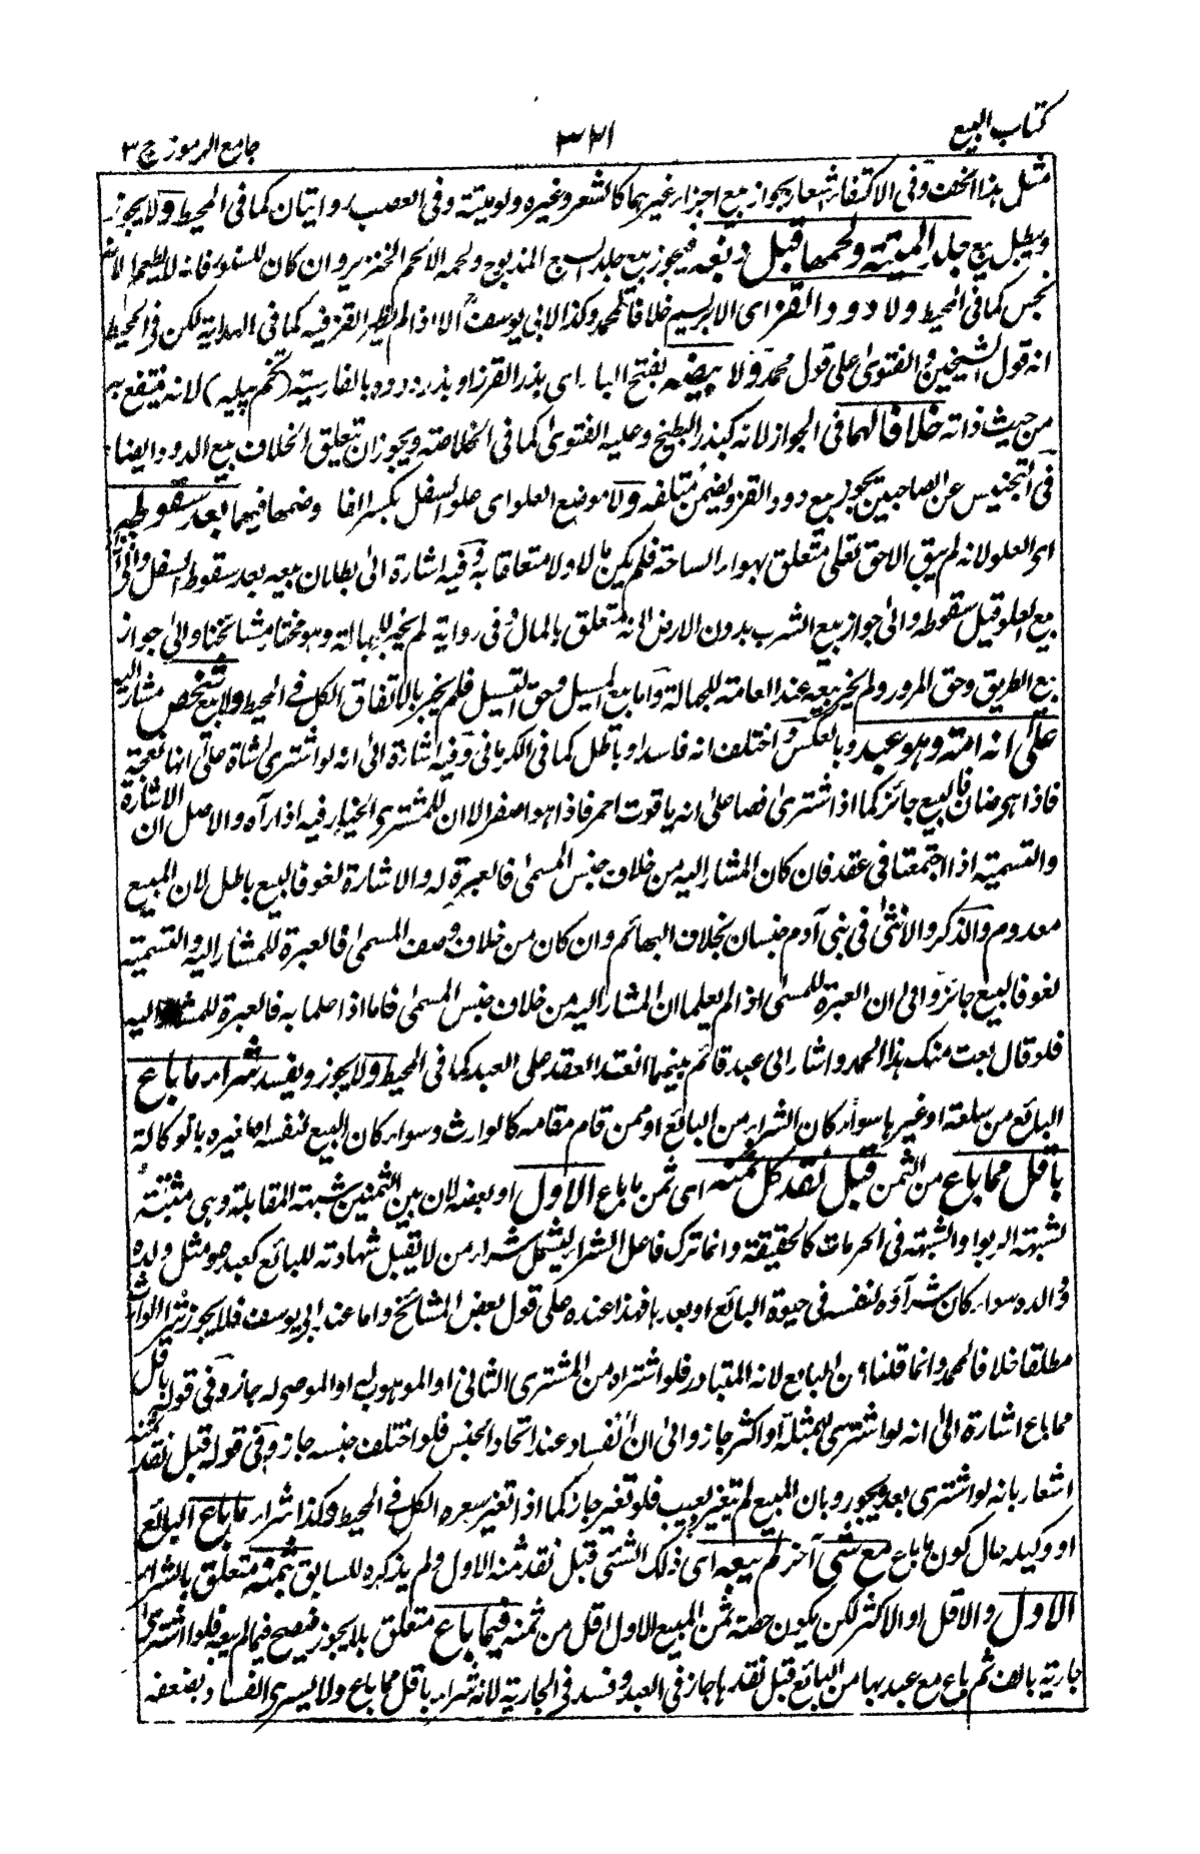 كتاب البيع
٣٢١
جامع الرموز ج ٣
مثل هذا الخف وفى الاكتفاء اشعار بجواز بيع اجزاء غيرهما كالشعر وغيره ولو ميتة وفى العصب روايتان كما فى المحيط ولا يجوز
ويبطل بيع جلد الميتة ولحمها قبل دبغه فيجوز بيع جلد السبع المذبوح ولحمه الا لحم الخنزير وان كان للسنور فانه لا يطعم لانه
نجس كما فى المحيط ولا دود القز اى الابريسم خلافا لمحمد وكذا لابى يوسف الا اذا لم يظهر القز فيه كما فى الهداية لكن فى المحيط
انه قول الشيخين والفتوىٰ على قول محمد ولا بيضه بفتح الباء اى بذر القز او بذر دوده بالفارسية (تخم پيله) لانه ينتفع به
من حيث ذاته خلافا لهما فى الجواز لانه كبذر البطيخ وعليه الفتوىٰ كما فى الخلاصة ويجوز ان يتعلق الخلاف ببيع الدود ايضا
فى التجنيس عن الصاحبين يجوز بيع دود القز ويضمن متلفه ولا موضع العلو اى علو السفل بكسر الفاء وضمها فيهما بعد سقوطه
اى العلو لانه لم يبق الا حق تعلى متعلق بهواء الساحة فلم يكن مالا ولا متعلقا به وفيه اشارة الى بطلان بيعه بعد سقوط السفل والى
بيع العلو قبل سقوطه والىٰ جواز بيع الشرب بدون الارض لانه متعلق بالمال وفى رواية لم يجز للجهالة وهو مختار مشائخنا والىٰ جواز
بيع الطريق وحق المرور ولم يجز بيعه عند العامة للجهالة واما بيع المسيل وحق التسييل فلم يجز بالاتفاق الكل فى المحيط ولا بيع شخص مشار اليه
علىٰ انه امة وهو عبد وبالعكس واختلف انه فاسد او باطل كما فى الكرمانى وفيه اشارة الىٰ انه لو اشترى شاة علىٰ انها نعجة
فاذا هى ضان فالبيع جائز كما اذا اشترىٰ فصا علىٰ انه ياقوت احمر فاذا هو اصفر الا ان للمشترى الخيار فيه اذا رآه والاصل ان الاشارة
والتسمية اذا اجتمعتا فى عقد فان كان المشار اليه من خلاف جنس المسمىٰ فالعبرة له والاشارة لغو فالبيع باطل لان المبيع
معدوم والذكر والانثىٰ فى بنى آدم جنسان بخلاف البهائم وان كان من خلاف وصف المسمىٰ فالعبرة للمشار اليه والتسمية
لغو فالبيع جائز والى ان العبرة للمسمىٰ اذا لم يعلما ان المشار اليه من خلاف جنس المسمىٰ فاما اذا علما به فالعبرة للمشار اليه
فلو قال بعت منك هذا الحمد واشار الى عبد قائم بينهما انعقد العقد على العبد كما فى المحيط ولا يجوز ويفسد شراء ما باع
البائع من سلعة او غيرها سواء كان الشراء من البائع او ممن قام مقامه كالوارث وسواء كان البيع لنفسه او غيره بالوكالة
باقل مما باع من الثمن قبل نقد كل ثمنه اى ثمن ما باع الاول او بعضه لان بين الثمنين شبهة المقابلة وهى مثبتة
لشبهة الربوا والشبهة فى الحرمات كالحقيقة وانما ترك فاعل الشراء ليشمل شراء من لا تقبل شهادته للبائع كعبده ومثل ولده
ووالده سواء كان شراؤه لنفسه فى حيوة البائع او بعدها فهذا عنده علىٰ قول بعض المشائخ واما عند ابى يوسف فلا يجوز شراء الوارث
مطلقا خلافا لمحمد وانما قلنا من البائع لانه المتبادر فلو اشتراه من المشترى الثانى او الموهوب له او الموصى له جاز وفى قوله باقل
مما باع اشارة الىٰ انه لو اشترى بمثله او اكثر جاز والىٰ ان الفساد عند اتحاد الجنس فلو اختلف جنسه جاز وفى قوله قبل نقد ثمنه
اشعار بانه لو اشترى بعده يجوز وبان المبيع لم يتغير بعيب فلو تغير جاز كما اذا تغير سعره الكل فى المحيط وكذا شراء ما باع البائع
او وكيله حال كون ما باع مع شئ آخر لم يبعه اى ذلك الشئ قبل نقد ثمنه الاول ولم يذكره للسابق بثمنه متعلق بالشراء
الاول والاقل او الاكثر لكن يكون حصة ثمن المبيع الاول اقل من ثمنه فيما باع متعلق بلا يجوز فيصح فيما لم يبعه فلو اشترىٰ
جارية بالف ثم باع مع عبد بها من البائع قبل نقدها جاز فى العبد وفسد فى الجارية لانه شراء باقل مما باع ولا يسرى الفساد بضعفه